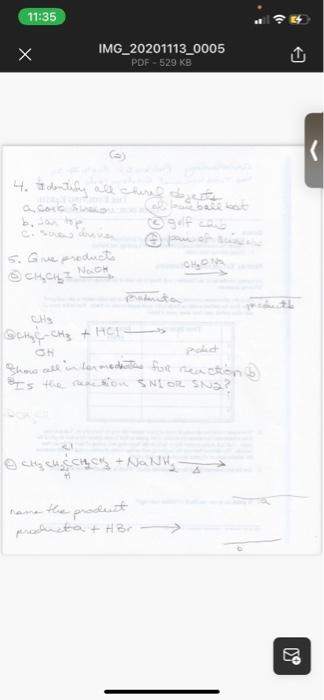 11:35
IMG_20201113_0005
PDF - 529 KB
(2)
4. Identify all chiral objects
a. cork screw d. baseball bat
b. jar top e golf club
c. screw driver f pair of
5. Give products
a CH3CH2I NaOH → CH3O Na →
producta productb
CH3
b CH3C-CH3 + HCl →
OH product
Show all intermediates for reaction b
Is the reaction SN1 OR SN2?
Cl
c CH3CH2CCH2CH3 + NaNH2 →
H Δ
a
name the product
producta + HBr →
b